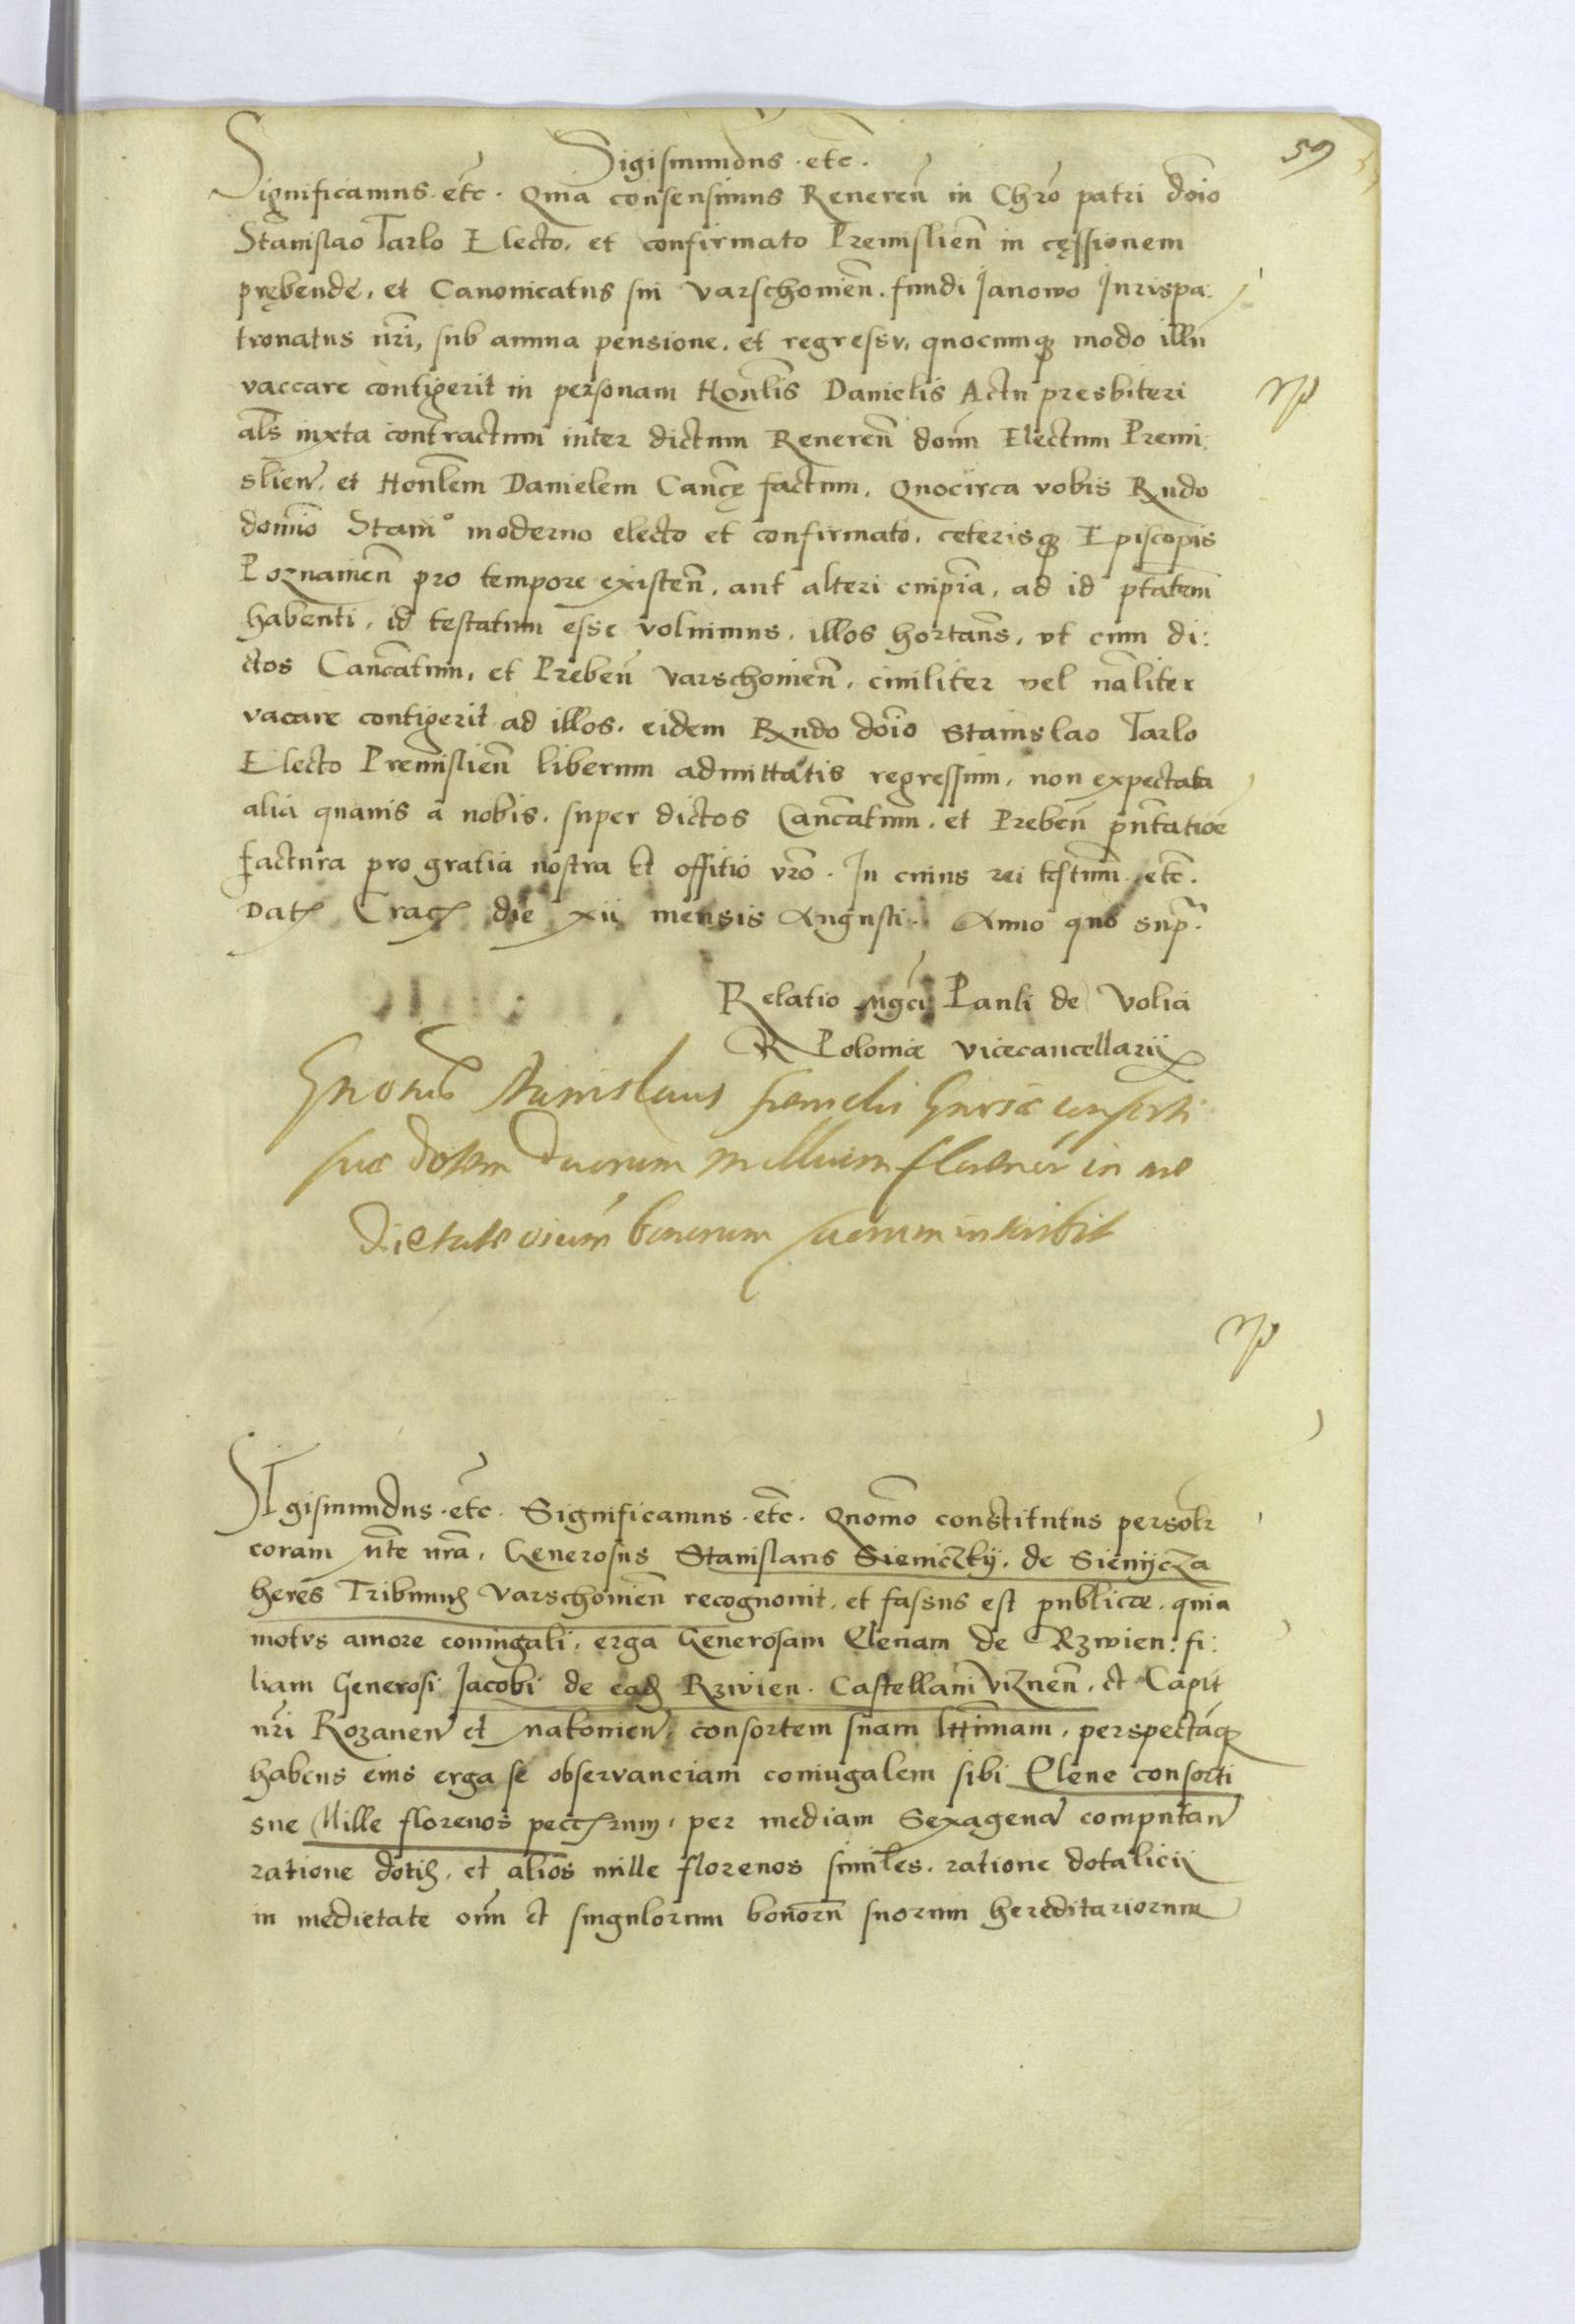 59
Sigismundus . etc̄ .
Significamus . etc̄ . Quia consensimus Reveren̄ in Chr̄o patri dōio
Stanislao Tarlo Electo, et confirmato Premislien̄ in cęssionem
prębende, et Canonicatus sui Varschovien̄ . fundi Janowo Jurispa:
tronatus nr̄i, sub annua pensione, et regressv, quocumq3 modo illū
vaccare contigerit in personam Honl̄is Danielis Actu presbiteri
al̄s iuxta contractum inter dictum Reveren̄ dōim Electum Premi:
slien̄, et Honl̄em Danielem factum, Quocirca vobis Rndo
domīo Stani° moderno electo et confirmato, ceterisq3 Episcopis
Poznanien̄ pro tempore existen̄, aut alteri cuipia, ad id ptātem
habenti, id testatum esse volumus, illos hortan̄s, vt cum di:
ctos Canc̄atum, et Preben̄ Varschovien̄, civiliter vel nāliter
vacare contigerit ad illos, eidem Rndo dōio Stanislao Tarlo
Electo Premislien̄ liberum admittatis regressum, non expectata
alia quavis a nobis, super dictos Canc̄atum, et Preben̄ pn̄tatioē
factura pro gratia nostra et offitio vrō . In cuius rei testm̄m etc̄ .
Dat Crac die xii mensis Augusti . Anno quo supr̄
Relatio mgc̄i Pauli de Volia
R Poloniæ vicecancellarij
Stanislaus consorti
suæ dotem duorum millium florenor̄ in me
dietate oium̄ bonorum suorum inscribit
Sigismundus . etc̄ . Significamus . etc̄ . Quomo constitutus persolr̄
coram nr̄a, Generosus Stanislaus Sieniczkij, de Sienijcza
heres Tribunus Varschovien̄ recognovit, et fassus est publicæ, quia
motvs amore coniugali, erga Generosam Elenam de Rzwien : fi:
liam Generosi Jacobi de ead Rzwien . Castellani Viznen̄, et Capit
nr̄i Rozanen̄ et makovien̄, consortem suam lttīmam, perspectāq3
habens eius erga se observanciam coniugalem sibi Elene consorti
sue Mille florenos pecrum, per mediam Sexagena computan̄
ratione dotis, et alios mille florenos similes, ratione dotalicij
in medietate oīm et singulorum bonorū suorum hereditariorum